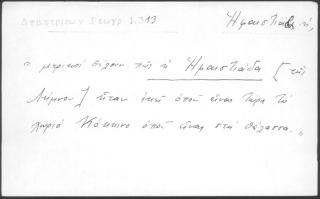 Δημητριέων Γεωγρ 1.313
Ἡφαιστιάς ἡ,
„ μερικοὶ θέλουν πῶς ἡ Ἡφαιστιάδα [ τῆς
Λήμνου ] ἦταν ἐκεῖ ὁποῦ εἶναι τώρα τὸ
χωριὸ Κόκκινο ὁποῦ εἶναι στὴ θάλασσα. „